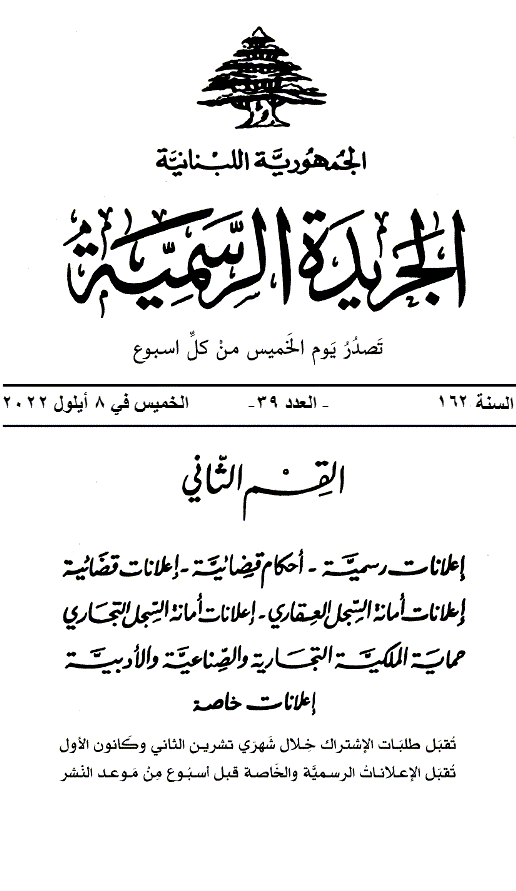 الجمهورية اللبنانية
الجريدة الرسمية
تصدر يوم الخميس من كل اسبوع
السنة ١٦٢ - العدد ٣٩ - الخميس في ٨ أيلول ٢٠٢٢
القسم الثاني
إعلانات رسمية - أحكام قضائية - إعلانات قضائية
إعلانات أمانة السجل العقاري - إعلانات أمانة السجل التجاري
حماية الملكية التجارية والصناعية والأدبية
إعلانات خاصة
تقبل طلبات الإشتراك خلال شهري تشرين الثاني وكانون الأول
تقبل الإعلانات الرسمية والخاصة قبل أسبوع من موعد النشر